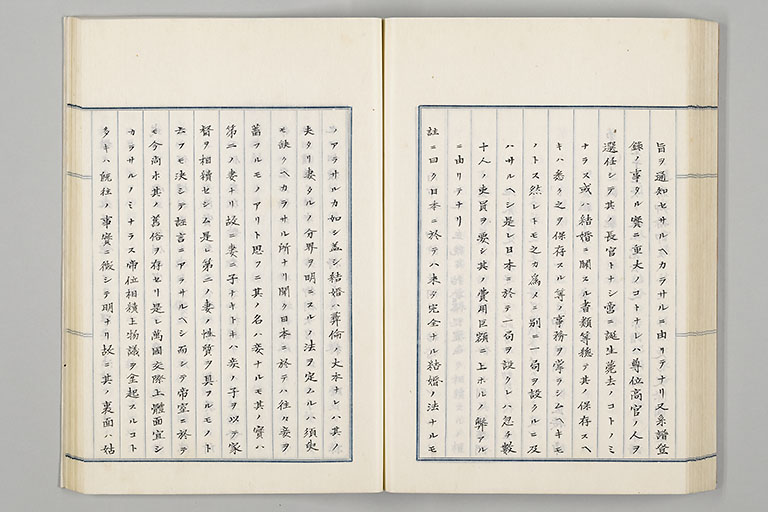 旨ヲ通知セサルヘカラサルニ由リテナリ又系譜登
錄ノ事タル實ニ重大ノコトナレハ尊位高官ノ人ヲ
選任シテ其ノ長官トナシ啻ニ誕生薨去ノコトノミ
ナラス或ハ結婚ニ關スル書類等總テ其ノ保存スヘ
キハ悉ク之ヲ保存スル等ノ事務ヲ掌ラシムヘキモ
ノトス然レトモ之カ爲メニ別ニ一局ヲ設クルニ及
ハサルヘシ是レ日本ニ於テ一局ヲ設クレハ忽チ數
十人ノ吏員ヲ要シ其ノ費用巨額ニ上ホルノ弊アル
ニ由リテナリ
註ニ曰ク日本ニ於テハ未タ完全ナル結婚ノ法ナルモ
ノアラサルカ如シ蓋シ結婚ハ彛倫ノ大本ナレハ其ノ
夫タリ妻タルノ分界ヲ明ニスルノ法ヲ定ムルハ須臾
モ缺クヘカラサル所ナリ聞ク日本ニ於テハ往々妾ヲ
蓄フルモノアリト思フニ其ノ名ハ妾ナルモ其ノ實ハ
第二ノ妻ナリ故ニ妻ニ子ナキトキハ妾ノ子ヲ以テ家
督ヲ相續セシム是レ第二ノ妻ノ性質ヲ具フルモノト
云フモ決シテ誣言ニアラサルヘシ而シテ帝室ニ於テ
モ今尚ホ其ノ舊俗ヲ存セリ是レ萬國交際上體面宜シ
カラサルノミナラス帝位相續上物議ヲ企起スルコト
多キハ既往ノ事實ニ徵シテ明ナリ故ニ其ノ裏面ハ姑